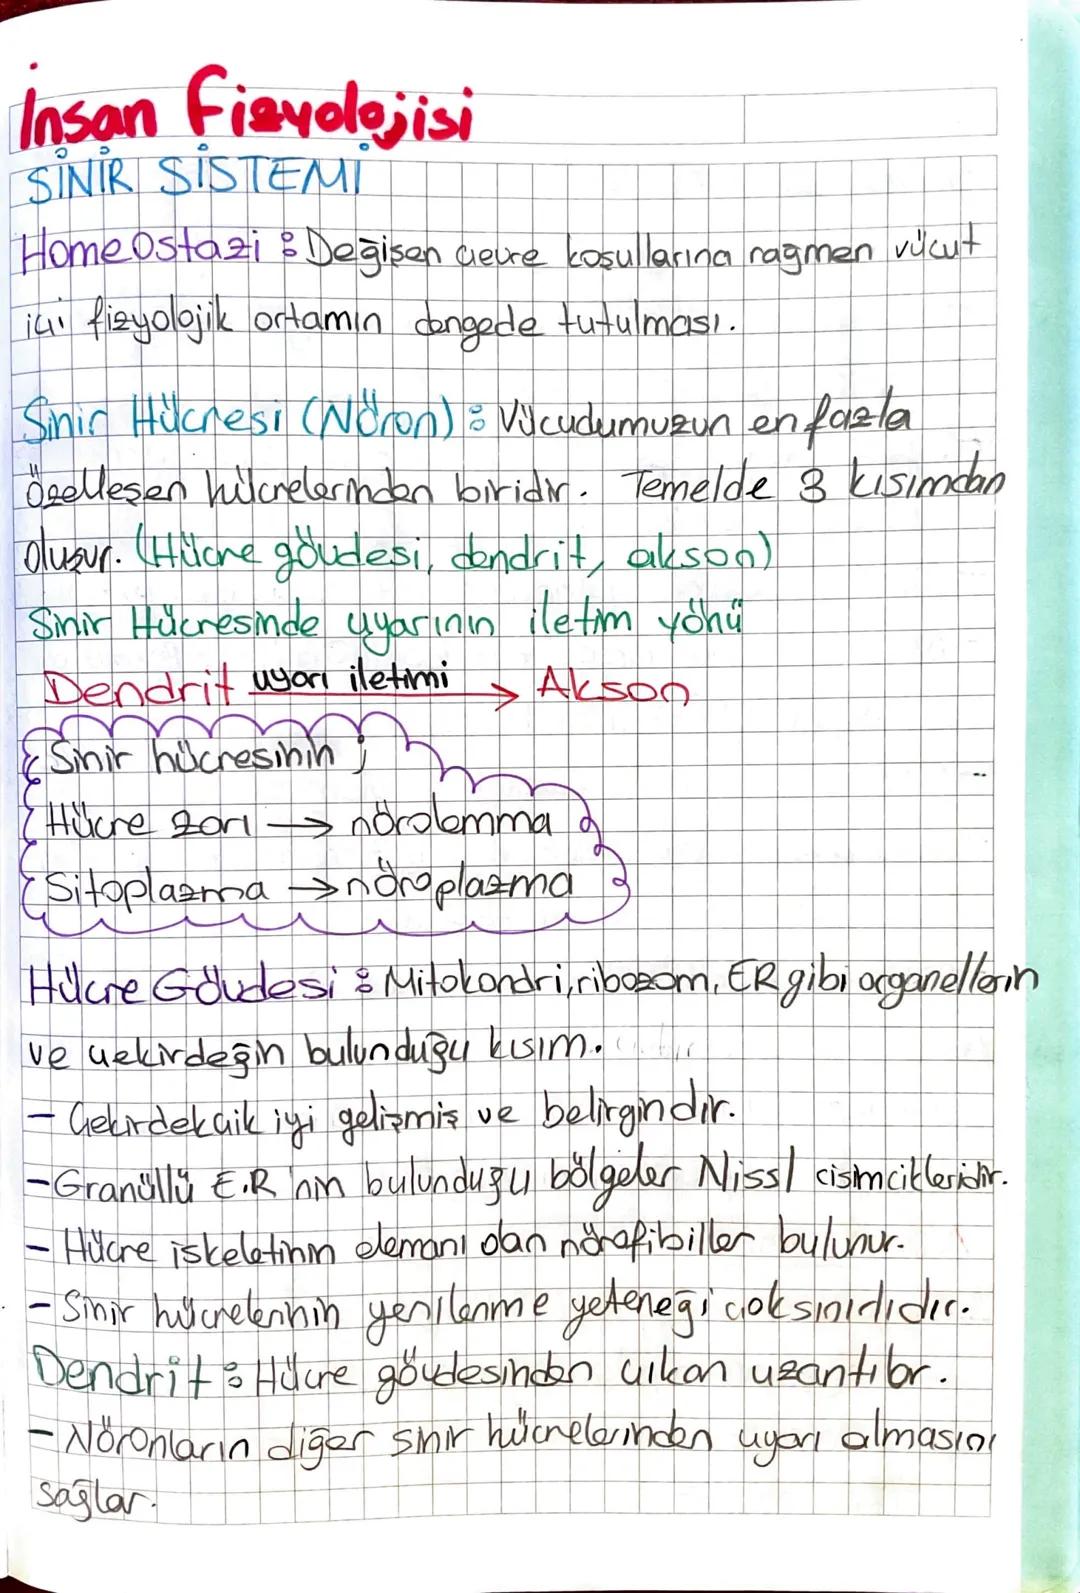 İnsan Fizyolojisi
SİNİR SİSTEMİ
Homeostazi : Değişen çevre koşullarına rağmen vücut
içi fizyolojik ortamın dengede tutulması.
Sinir Hücresi (Nöron) : Vücudumuzun en fazla
özelleşen hücrelerinden biridir. Temelde 3 kısımdan
oluşur. (Hücre gövdesi, dendrit, akson)
Sinir Hücresinde uyarının iletim yönü
Dendrit uyarı iletimi → Akson
Sinir hücresinin ;
Hücre zarı → nörolemma
Sitoplazma → nöroplazma
Hücre Gövdesi : Mitokondri, ribozom, ER gibi organellerin
ve çekirdeğin bulunduğu kısım.
- Çekirdekçik iyi gelişmiş ve belirgindir.
- Granüllü E.R 'nin bulunduğu bölgeler Nissl cisimcikleridir.
- Hücre iskeletinin elemanı olan nörofibiller bulunur.
- Sinir hücrelerinin yenilenme yeteneği çok sınırlıdır.
Dendrit : Hücre gövdesinden çıkan uzantılar.
- Nöronların diğer sinir hücrelerinden uyarı almasını
sağlar.